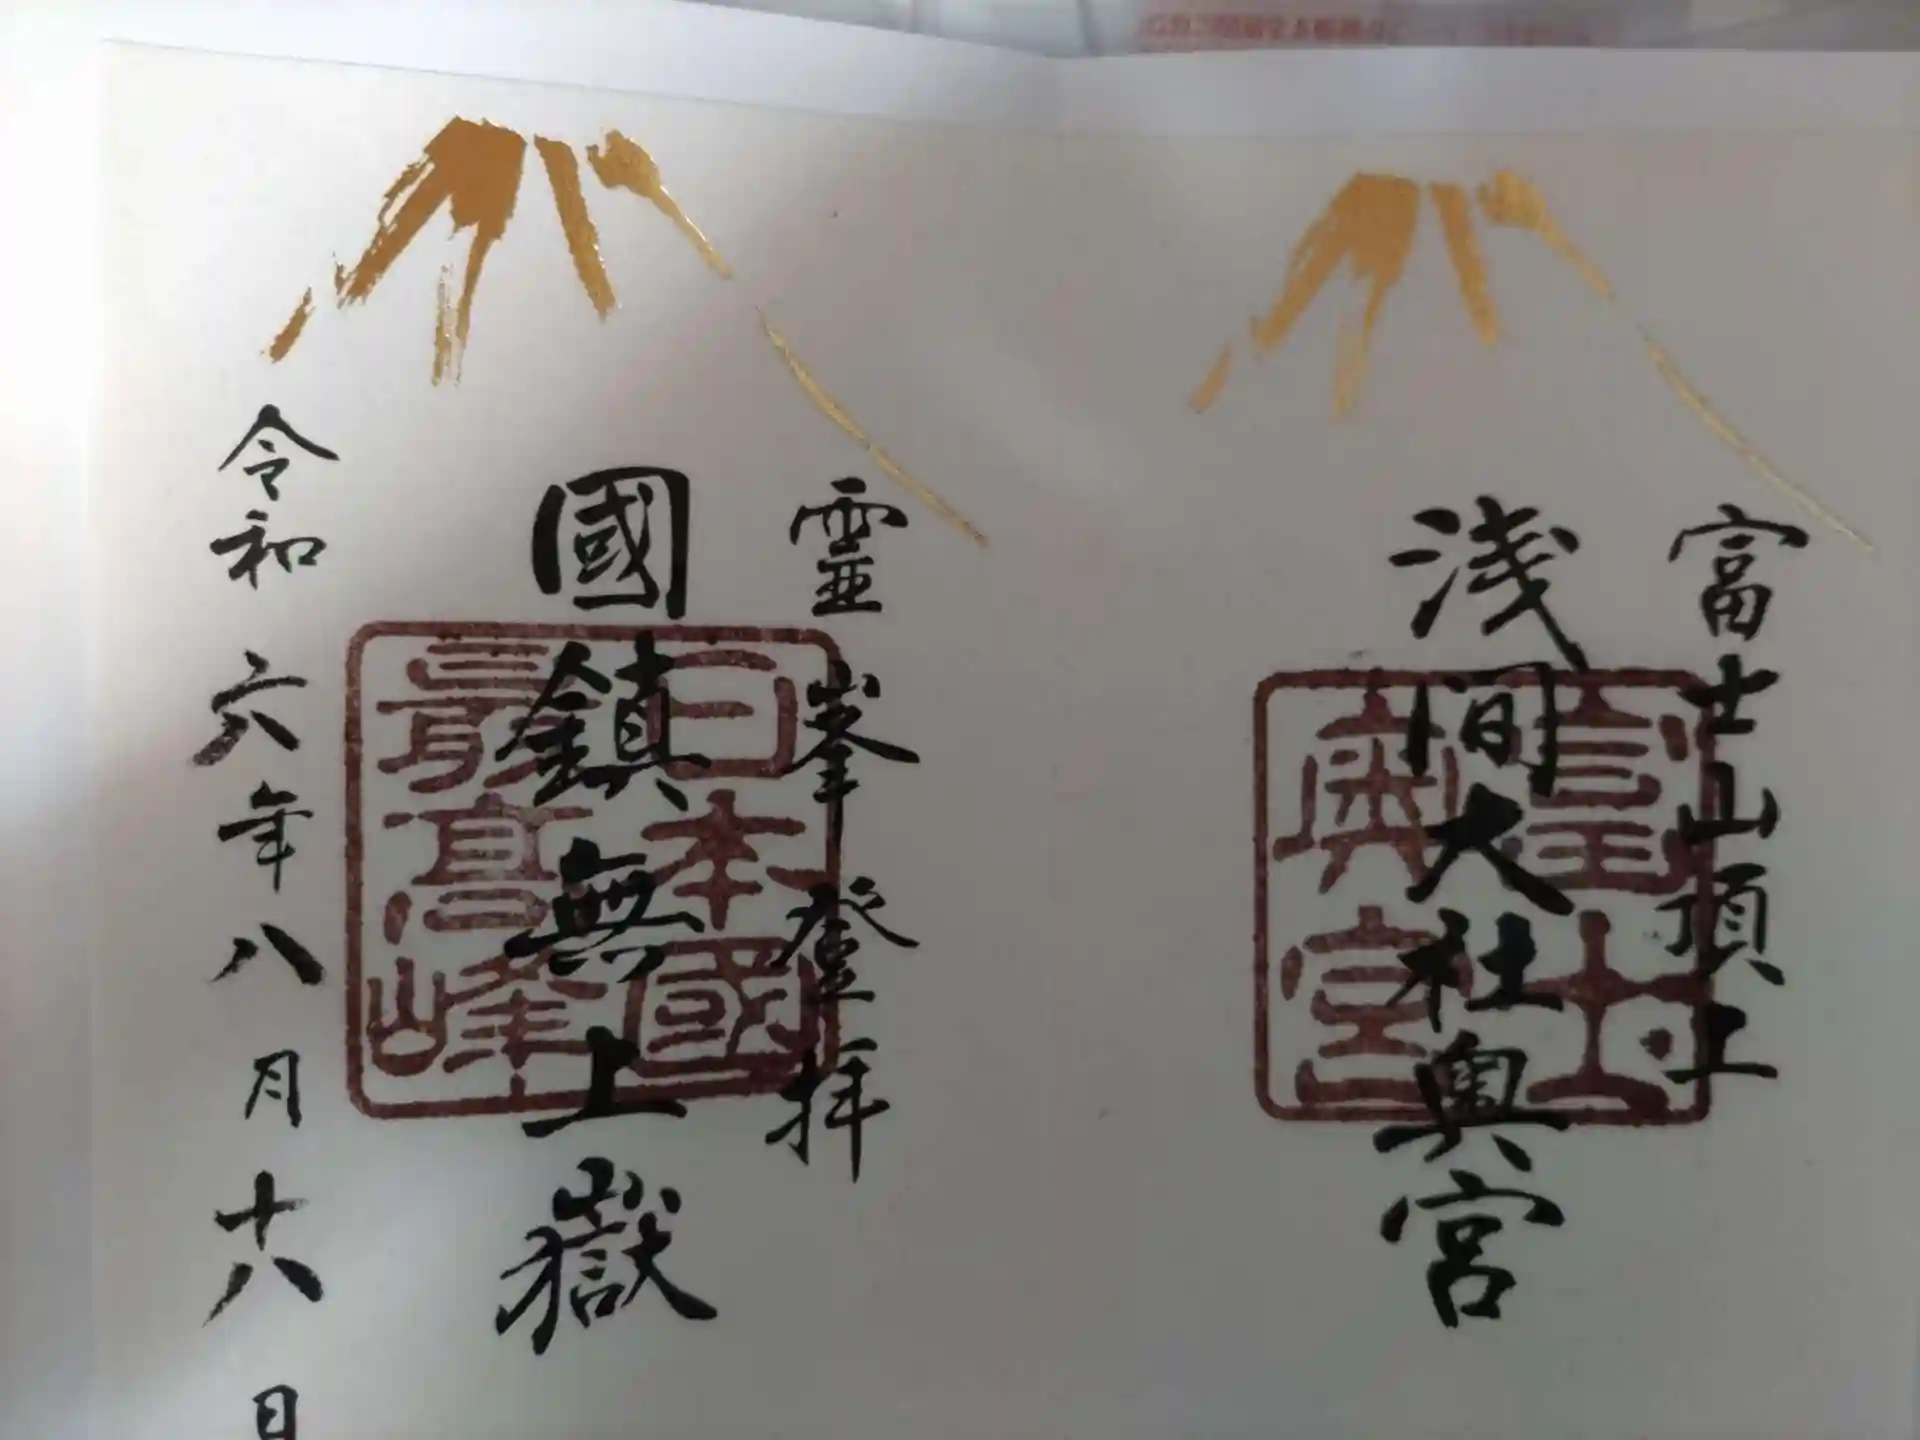 富士山頂上
浅間大社奥宮
富士
奥宮
靈峯登拝
國鎮無上嶽
日本國
最高峰
令和六年八月十八日